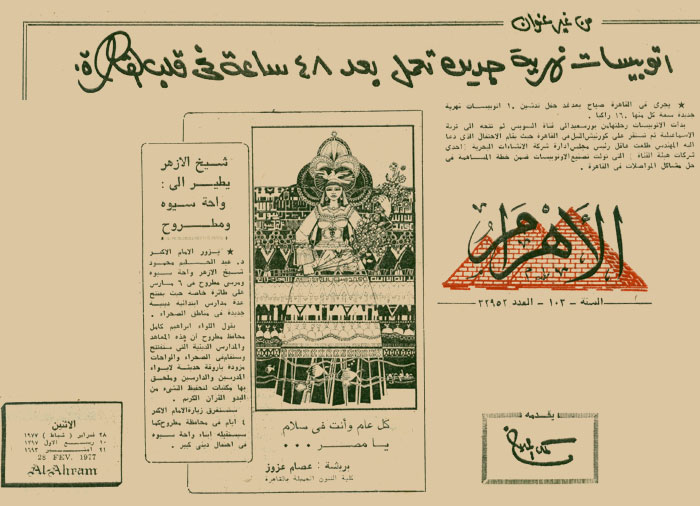 من غير عنوان
اتوبيسات نهرية جديدة تعمل بعد ٤٨ ساعة فى قلب القاهرة
★ يجرى فى القاهرة صباح بعد غد حفل تدشين ١٠ اتوبيسات نهرية
جديدة سعة كل منها ١٦ راكبا .
بدأت الاتوبيسات رحلتها من بورسعيد الى قناة السويس ثم تتجه الى ترعة
الاسماعيلية ثم تستقر على كورنيش النيل فى القاهرة حيث يقام الاحتفال الذى دعا
اليه المهندس طلعت عاقل رئيس مجلس ادارة شركة الانشاءات البحرية : احدى
شركات هيئة القناة : التى تولت تصنيع الاتوبيسات ضمن خطة المساهمة فى
حل مشاكل المواصلات فى القاهرة .
شيخ الازهر
يطير الى :
واحة سيوه
ومطروح
★ يزور الامام الاكبر
د. عبد الحليم محمود
شيخ الازهر واحة سيوه
ومرسى مطروح فى ٦ مارس
على طائرة خاصة حيث يفتتح
عدة مدارس ابتدائية دينية
جديدة فى مناطق الصحراء .
يقول اللواء ابراهيم كامل
محافظ مطروح أن هذه المعاهد
والمدارس الدينية التى ستفتتح
وستغطى الصحراء والواحات
مزودة بأروقة حديثة لايواء
المدرسين والدارسين وملحق
بها مكتبات لتحفيظ النشء من
البدو القرآن الكريم .
ستستغرق زيارة الامام الاكبر
٤ ايام فى محافظة مطروح كما
سيستقبله ابناء واحة سيوه
فى احتفال دينى كبير .
كل عام وأنت فى سلام
يا مصر ٠٠٠
بريشة : عصام عزوز
كلية الفنون الجميلة بالقاهرة
الأهرام
السنة - ١٠٣ - العدد ٣٢٩٥٢
يقدمه :
الاثنين
٢٨ فبراير ( شباط ) ١٩٧٧
١٠ ربيع الاول ١٣٩٧
٢١ أمشير ١٦٩٣
28 FEV. 1977
Al-Ahram